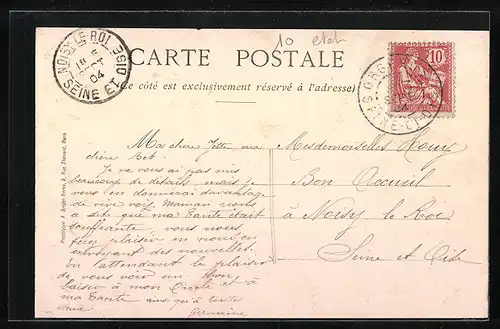 10 etat
CARTE POSTALE
(Ce côté est exclusivement réservé à l'adresse)
NOISY-LE-ROI
5
04
SEINE ET OISE
10
ORS
SEINE-ET-O
Ma chère Jette, ma
chère Bet
Je ne vous ai pas mis
beaucoup de détails, mais je
vous en donnerai davantage
de vive voix. Maman vous
a dit que ma Tante était
souffrante, vous nous
ferez plaisir en nous en
envoyant des nouvelles.
En attendant le plaisir
de vous voir un bon
baiser à mon Oncle et à
ma Tante ainsi qu'à toute
deux
Germaine
Mesdemoiselles
Bon Accueil
à Noisy le Roi
Seine et Oise
Phototypie J. Berger Frères, 9, Rue Thénard, Paris